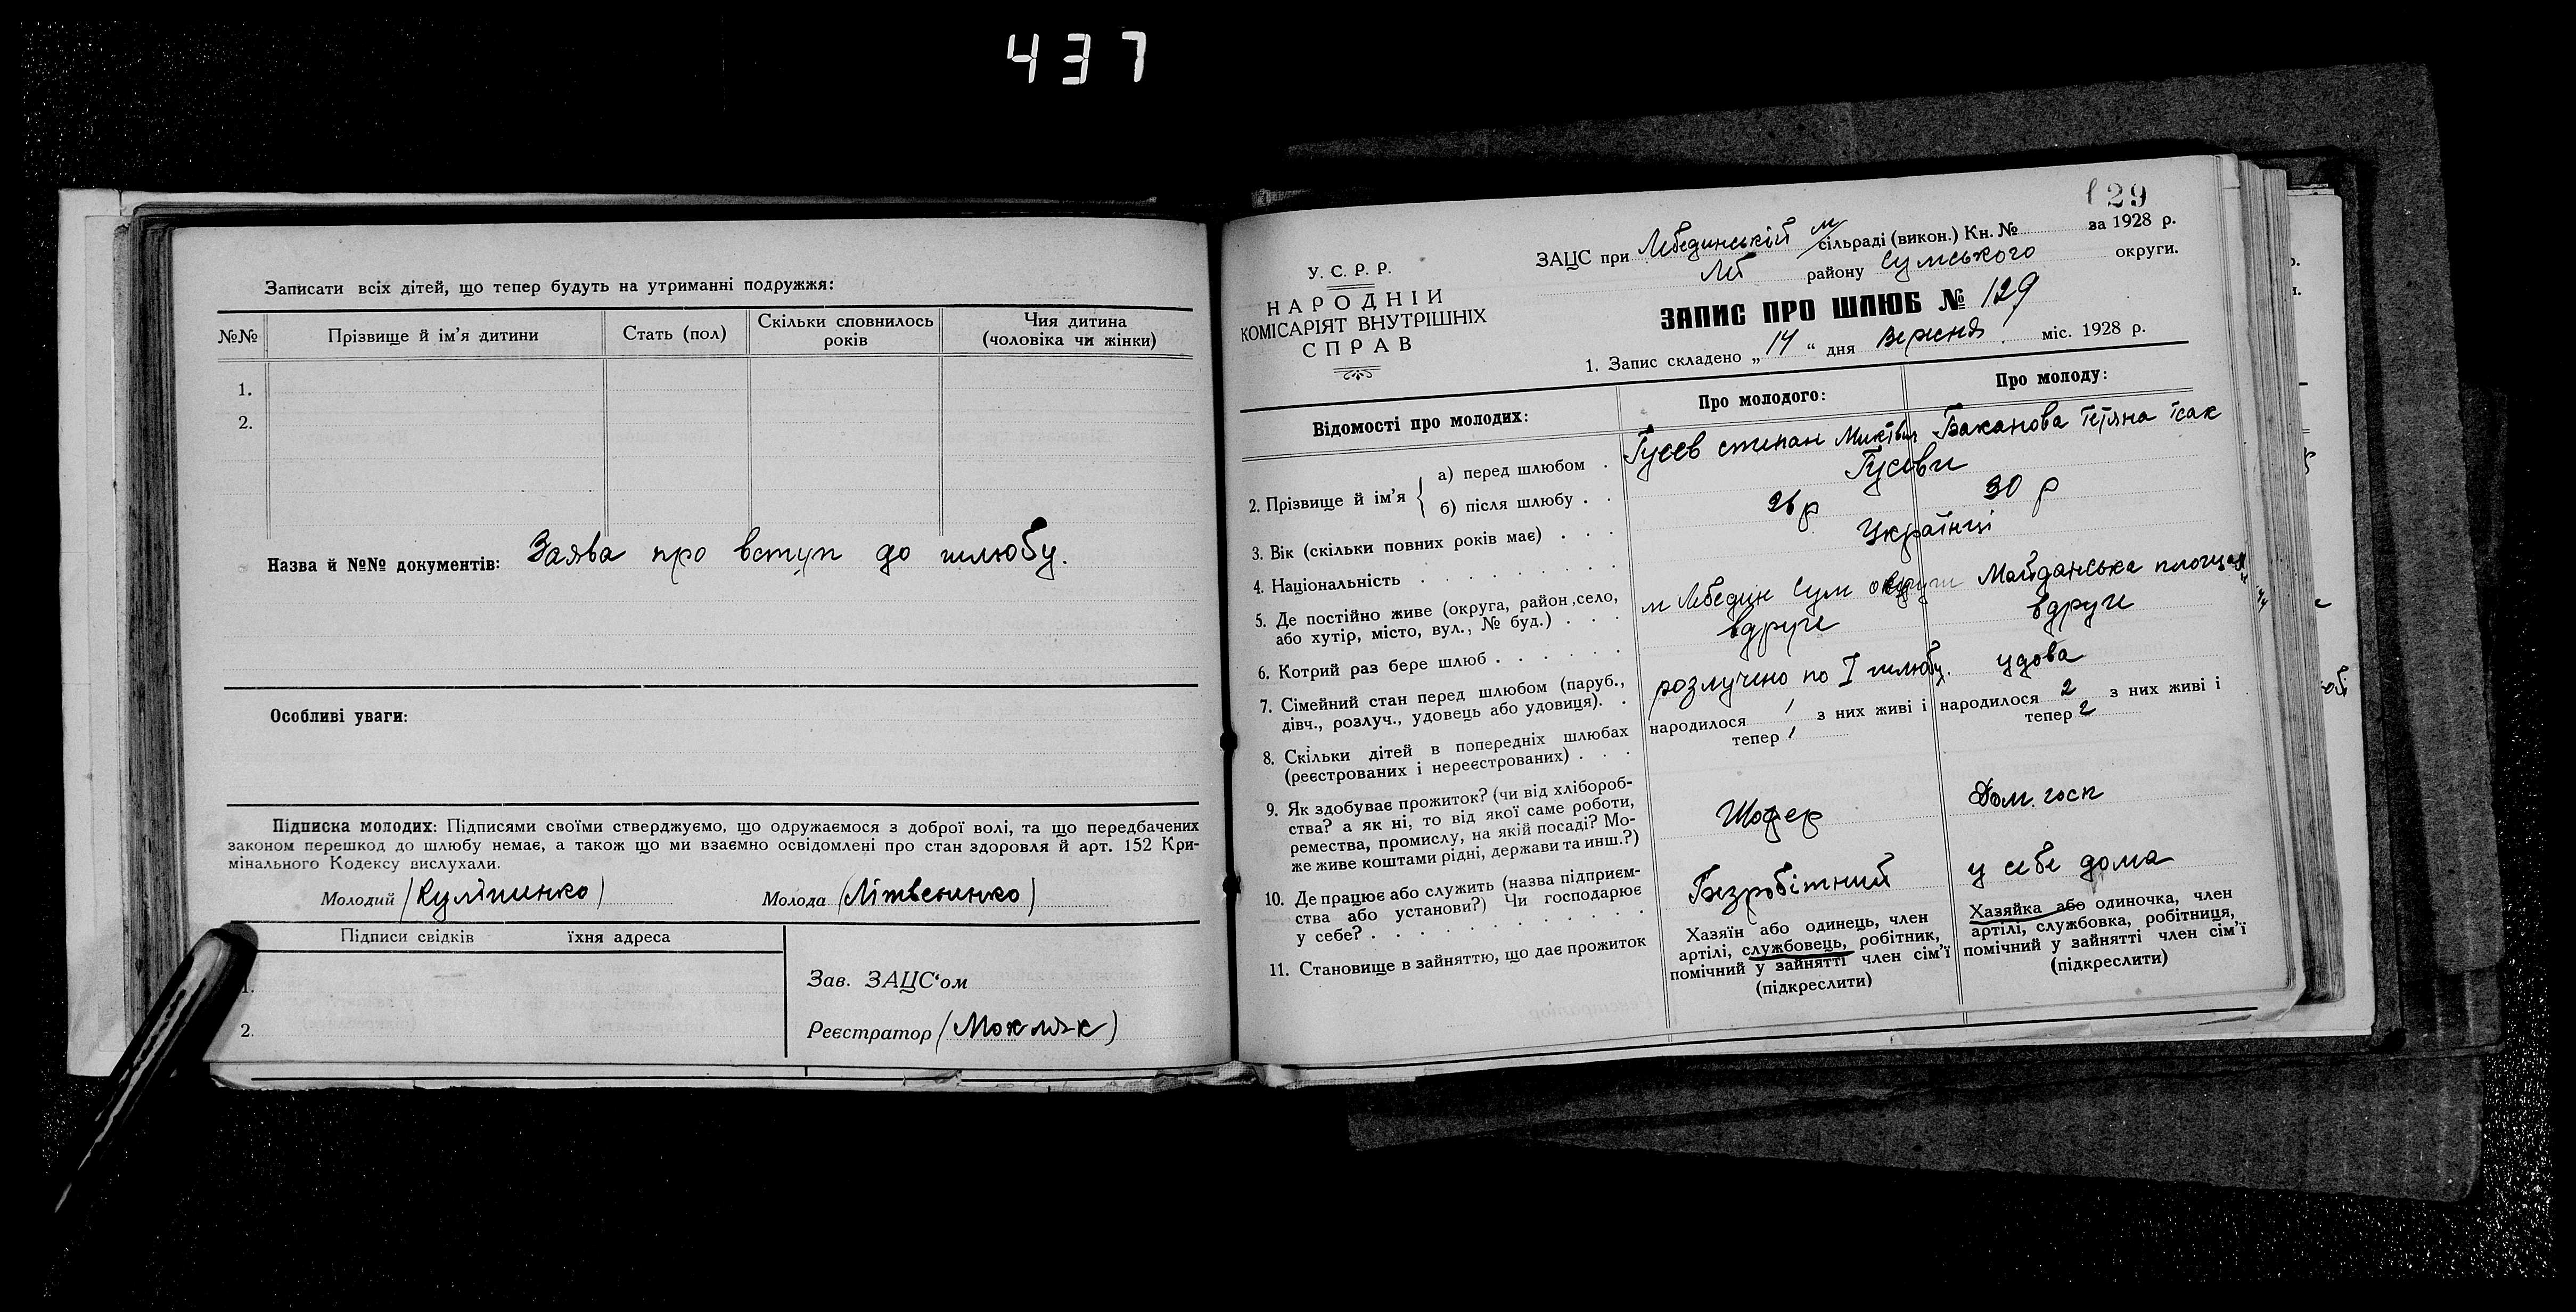 437
Записати всіх дітей, що тепер будуть на утриманні подружжя:
№№ Прізвище й ім'я дитини Стать (пол) Скільки сповнилось років Чия дитина (чоловіка чи жінки)
1.
2.
Назва й №№ документів: Заява про вступ до шлюбу.
Особливі уваги:
Підписка молодих: Підписями своїми стверджуємо, що одружаємося з доброї волі, та що передбачених
законом перешкод до шлюбу немає, а також що ми взаємно освідомлені про стан здоровля й арт. 152 Кри-
мінального Кодексу вислухали.
Молодий (Куліпинко) Молода (Літвененко)
Підписи свідків їхня адреса
1.
2.
Зав. ЗАЦС'ом
Реєстратор (Мокляк)
129
У. С. Р. Р.
НАРОДНІЙ
КОМІСАРІЯТ ВНУТРІШНІХ
СПРАВ
ЗАЦС при Лебединській м/сільраді (викон.) Кн. № за 1928 р.
Леб району Сумського округи.
ЗАПИС ПРО ШЛЮБ № 129
1. Запис складено „14“ дня Вересня міс. 1928 р.
Відомості про молодих: Про молодого: Про молоду:
2. Прізвище й ім'я { а) перед шлюбом . Гусєв степан Микітович Баканова Тетяна Ісак
б) після шлюбу . . Гусєви
3. Вік (скільки повних років має) . . . 26 р 30 р
4. Національність . . . . . . . . . Українці
5. Де постійно живе (округа, район, село,
або хутір, місто, вул., № буд.) . . . м Лебедин Сум округи Майданська площад
6. Котрий раз бере шлюб . . . . . . вдруге вдруге
7. Сімейний стан перед шлюбом (паруб.,
дівч., розлуч., удовець або удовиця). . розлучено по I шлюбу. удова
8. Скільки дітей в попередніх шлюбах
(реєстрованих і нереєстрованих) . . .
народилося 1 з них живі і
тепер 1
народилося 2 з них живі і
тепер 2
9. Як здобуває прожиток? (чи від хлібороб-
ства? а як ні, то від якої саме роботи,
ремества, промислу, на якій посаді? Мо-
же живе коштами рідні, держави та инш.?)
Шофер
Дом. госп
10. Де працює або служить (назва підприєм-
ства або установи?) Чи господарює
у себе? . . . . . . . . . . .
Безробітний
у себе дома
11. Становище в зайняттю, що дає прожиток
Хазяїн або одинець, член
артілі, службовець, робітник,
помічний у зайнятті член сім'ї
(підкреслити)
Хазяйка або одиночка, член
артілі, службовка, робітниця,
помічний у зайнятті член сім'ї
(підкреслити)